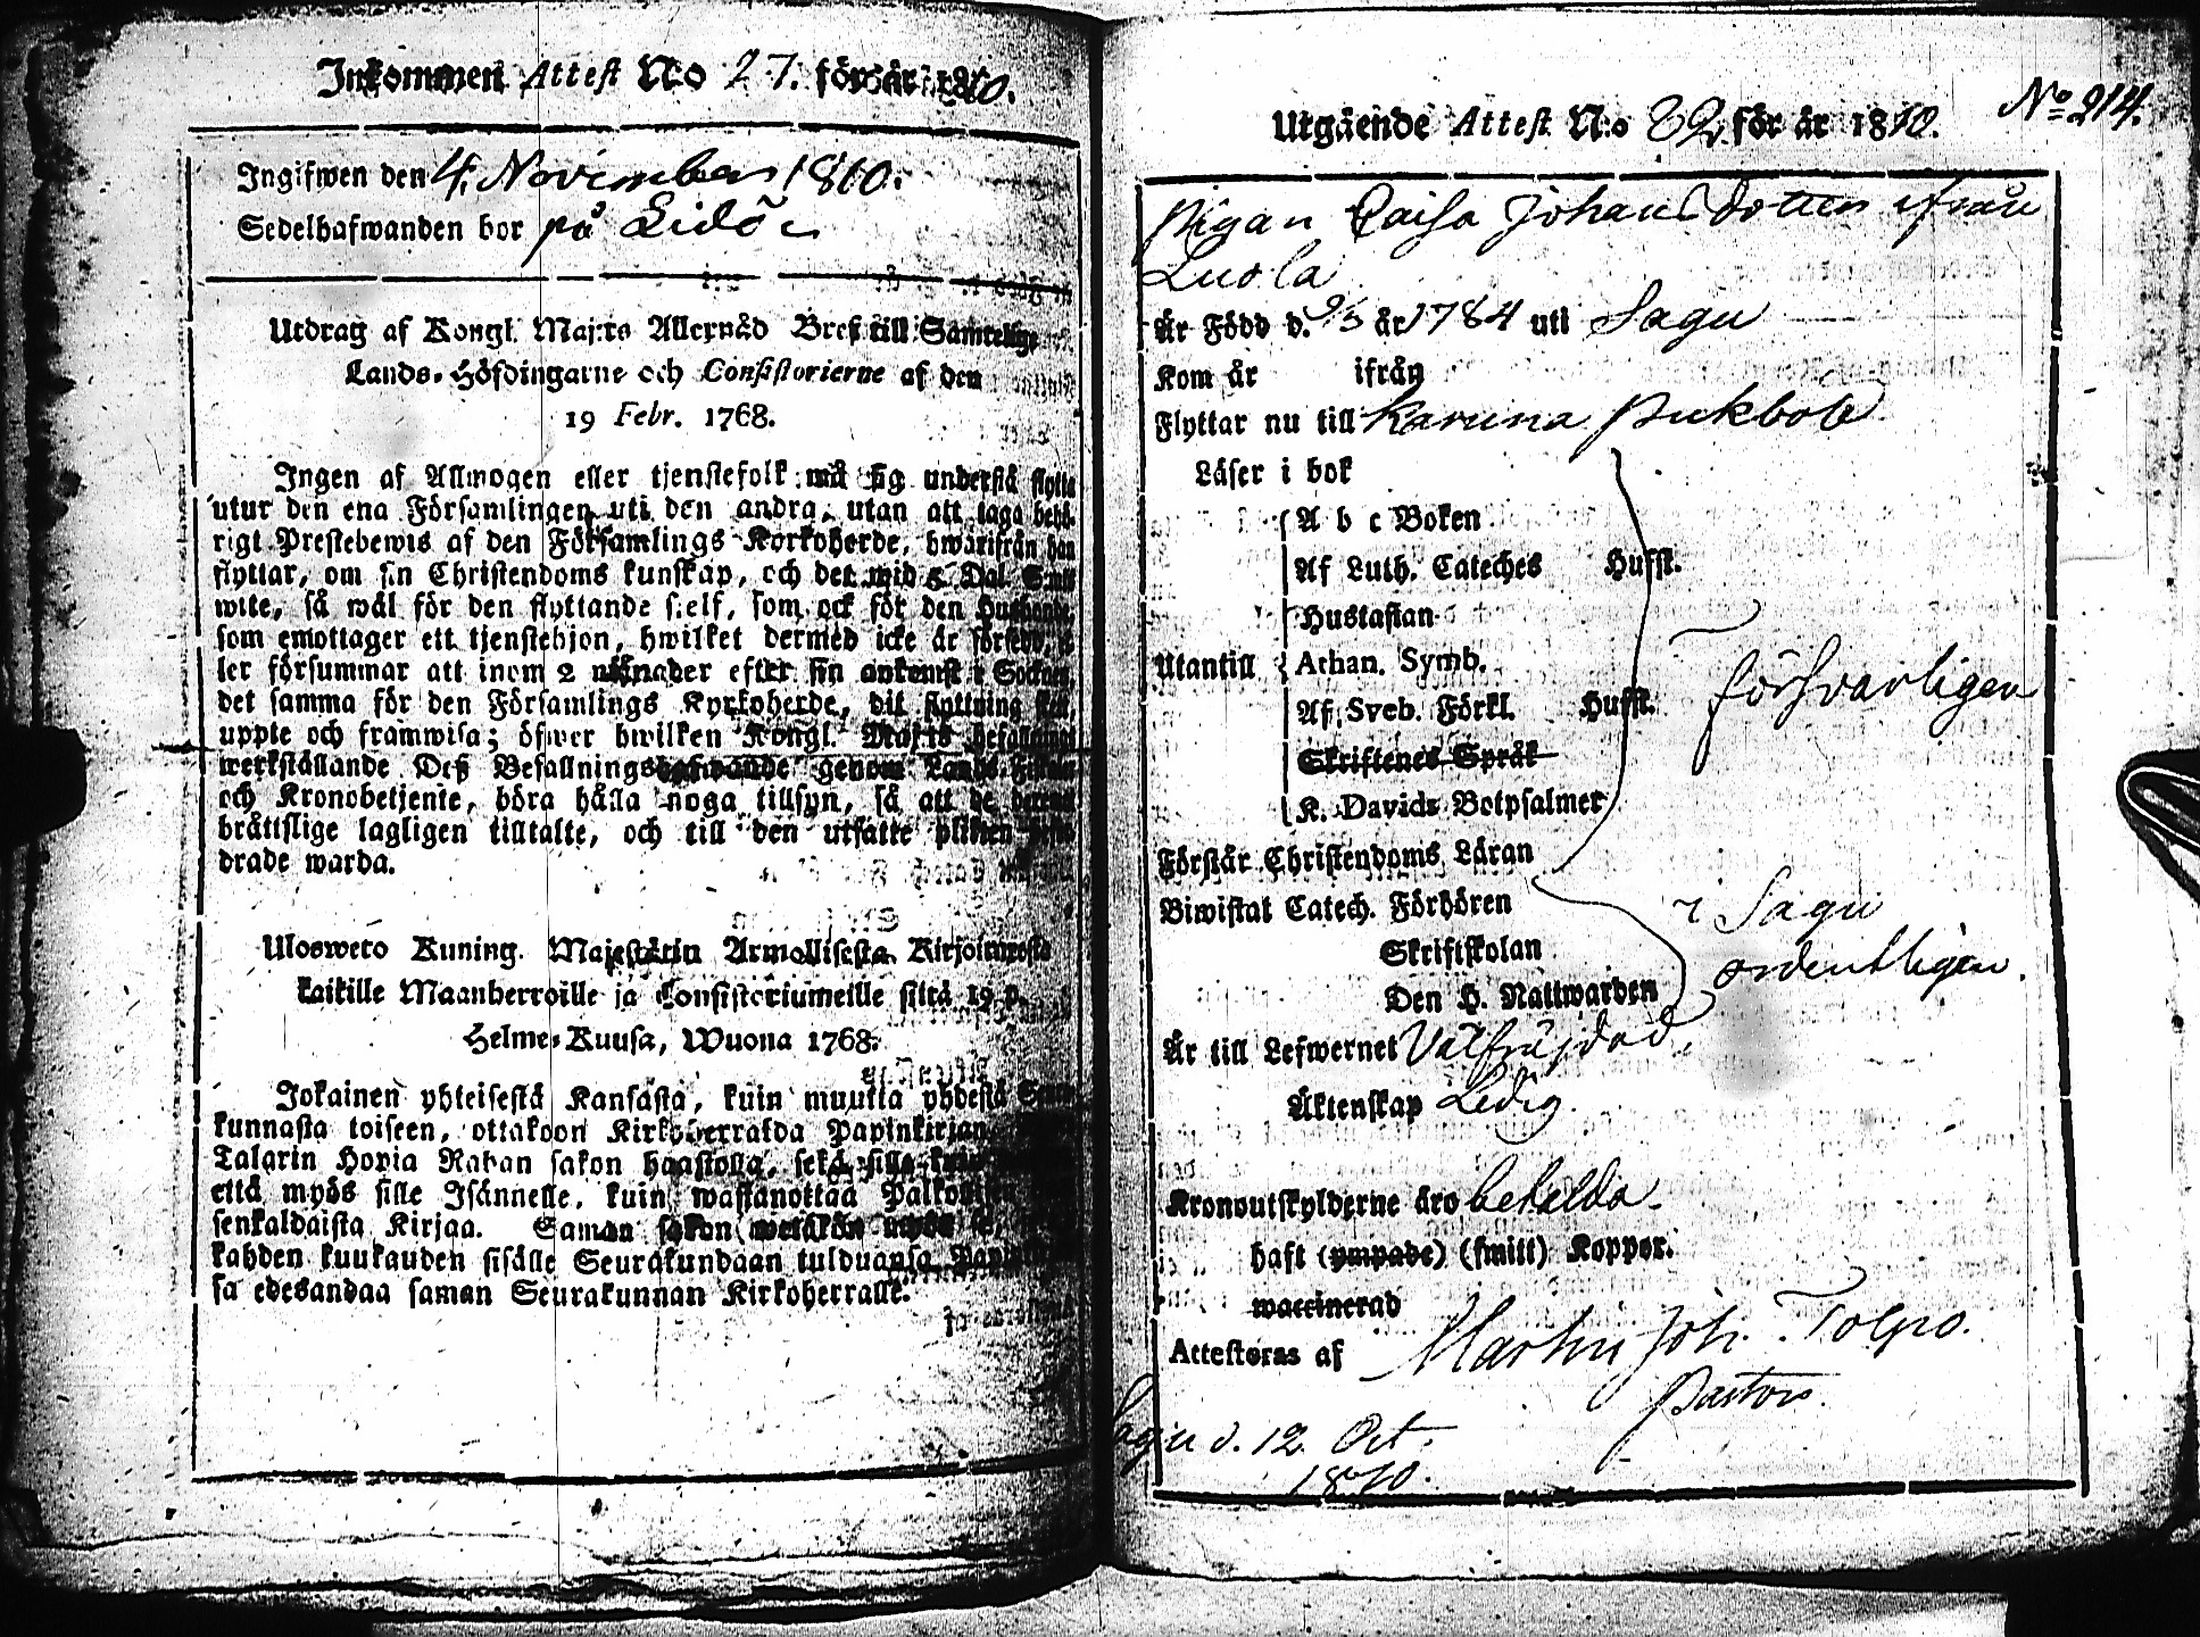 Inkommen Attest No 27. för år 1810.
Ingifwen den 4. November 1810.
Sedelhafwanden bor på Lidö
Utdrag af Kongl. Maj:ts Allernåd Bref till Samtelige
Lands-Höfdingarne och Consistorierne af den
19 Febr. 1768.
Ingen af Allmogen eller tjenstefolk må sig understå flytta
utur den ena Församlingen uti den andra, utan att taga behö-
rigt Prestebewis af den Församlings Kyrkoherde, hwarifrån han
flyttar, om sin Christendoms kunskap, och det wid 5 Dal. S:mts
wite, så wäl för den flyttande sjelf, som ock för den Husbonde,
som emottager ett tjenstehjon, hwilket dermed icke är försedd, el
ler försummar att inom 2 månader efter sin ankomst i Socknen,
det samma för den Församlings Kyrkoherde, dit flyttning sker,
uppte och framwisa; öfwer hwilken Kongl. Maj:ts befallning
werkställande Dess Befallningshafwande genom Lands-Fiskaler
och Kronobetjente, böra hålla noga tillsyn, så att de
bråttslige lagligen tilltalte, och till den utsatte plikten
drade warda.
Ulosweto Kuning. Majestätin Armollisesta Kirjoituxesta
kaikille Maanherroille ja Consistoriumeille siltä 19 p.
Helme-Kuusa, Wuona 1768.
Jokainen yhteisestä Kansasta, kuin muutta yhdestä Seura
kunnasta toiseen, ottakoon Kirkoherralda Papinkirjan
Talarin Hopia Rahan sakon haastolla, sekä sille kuin
että myös sille Isännelle, kuin wastanottaa Palkollisen
senkaldaista Kirjaa. Saman sakon wetäkön myös se,
kahden kuukauden sisälle Seurakundaan tulduansa Papin
sa edesandaa saman Seurakunnan Kirkoherralle.
No 214.
Utgående Attest N:o 82 för år 1810.
Pigan Caisa Johansdotter ifrån
Luola
Är Född d. 9/5 år 1784 uti Sagu
Kom år ifrån
Flyttar nu till Karuna Pukbole
Läser i bok
A b c Boken
Af Luth. Cateches Husst.
Hustaflan
Utantill Athan. Symb.
Försvarligen
Af Sveb. Förkl. Husst.
Skriftenes Språk
K. Davids Botpsalmer
Förstår Christendoms Läran
Biwistat Catech. Förhören i Sagu
Skriftskolan ordentligen.
Den H. Nattwarden
Är till Lefwernet Välfräjdad.
Äktenskap Ledig.
Kronoutskylderne äro betalda
haft (ympade) (smitt) Koppor.
waccinerad
Attesteras af Martin Joh. Tolpo.
Pastor.
Sagu d. 12 Oct.
1810.